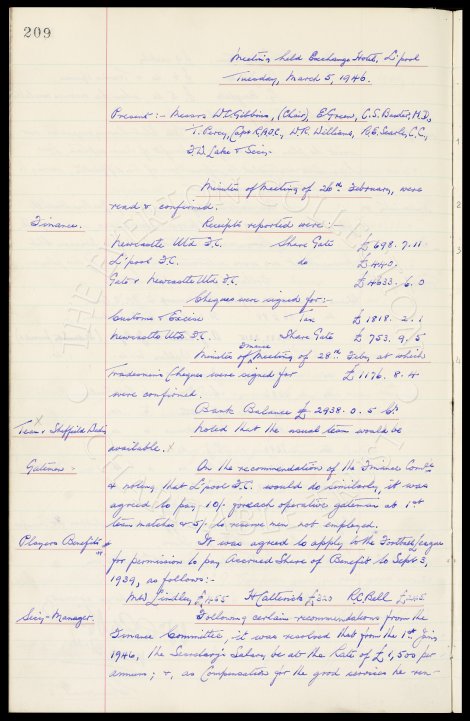 209
Meeting held Exchange Hotel, L'pool
Tuesday, March 5, 1946.
Present :- Messrs W.C. Gibbins, (Chair), E. Green, C.S. Baxter, M.D.,
T. Percy, Capt R.A.O.C., W.R. Williams, R.E. Searle, C.C.,
F.D. Lake & Secy.
Minutes of Meeting of 26th February, were
read & confirmed.
Finance. Receipts reported were :-
Newcastle Utd F.C. Share Gate £698. 7. 11
L'pool F.C. do £440.
Gate v Newcastle Utd F.C. £4633. 6. 0
Cheques were signed for :-
Customs & Excise Tax £1818. 2. 1
Newcastle Utd F.C. Share Gate £753. 9. 5
Finance
Minutes of Meeting of 28th Feby, at which
Tradesmens Cheques were signed for £1176. 8. 4
were confirmed.
Bank Balance £2938. 0. 5 Cr
Team v Sheffield Noted that the usual team would be
available. x
Gatemen - On the recommendation of the Finance Comtee
& noting that L'pool F.C. would do similarly, it was
agreed to pay 10/- to each operative gateman at 1st
team matches & 5/- to reserve men not employed.
Players Benefits It was agreed to apply to the Football League
for permission to pay Accrued Share of Benefit to Sept 3,
1939, as follows :-
Lindley £455 H Catterick £320 R.C. Bell
Secy-Manager. Following certain recommendations from the
Finance Committee, it was resolved that from the 1st
1946, the Secretary's Salary be at the Rate of £1,500 per
annum; &, as Compensation for the good services he ren-